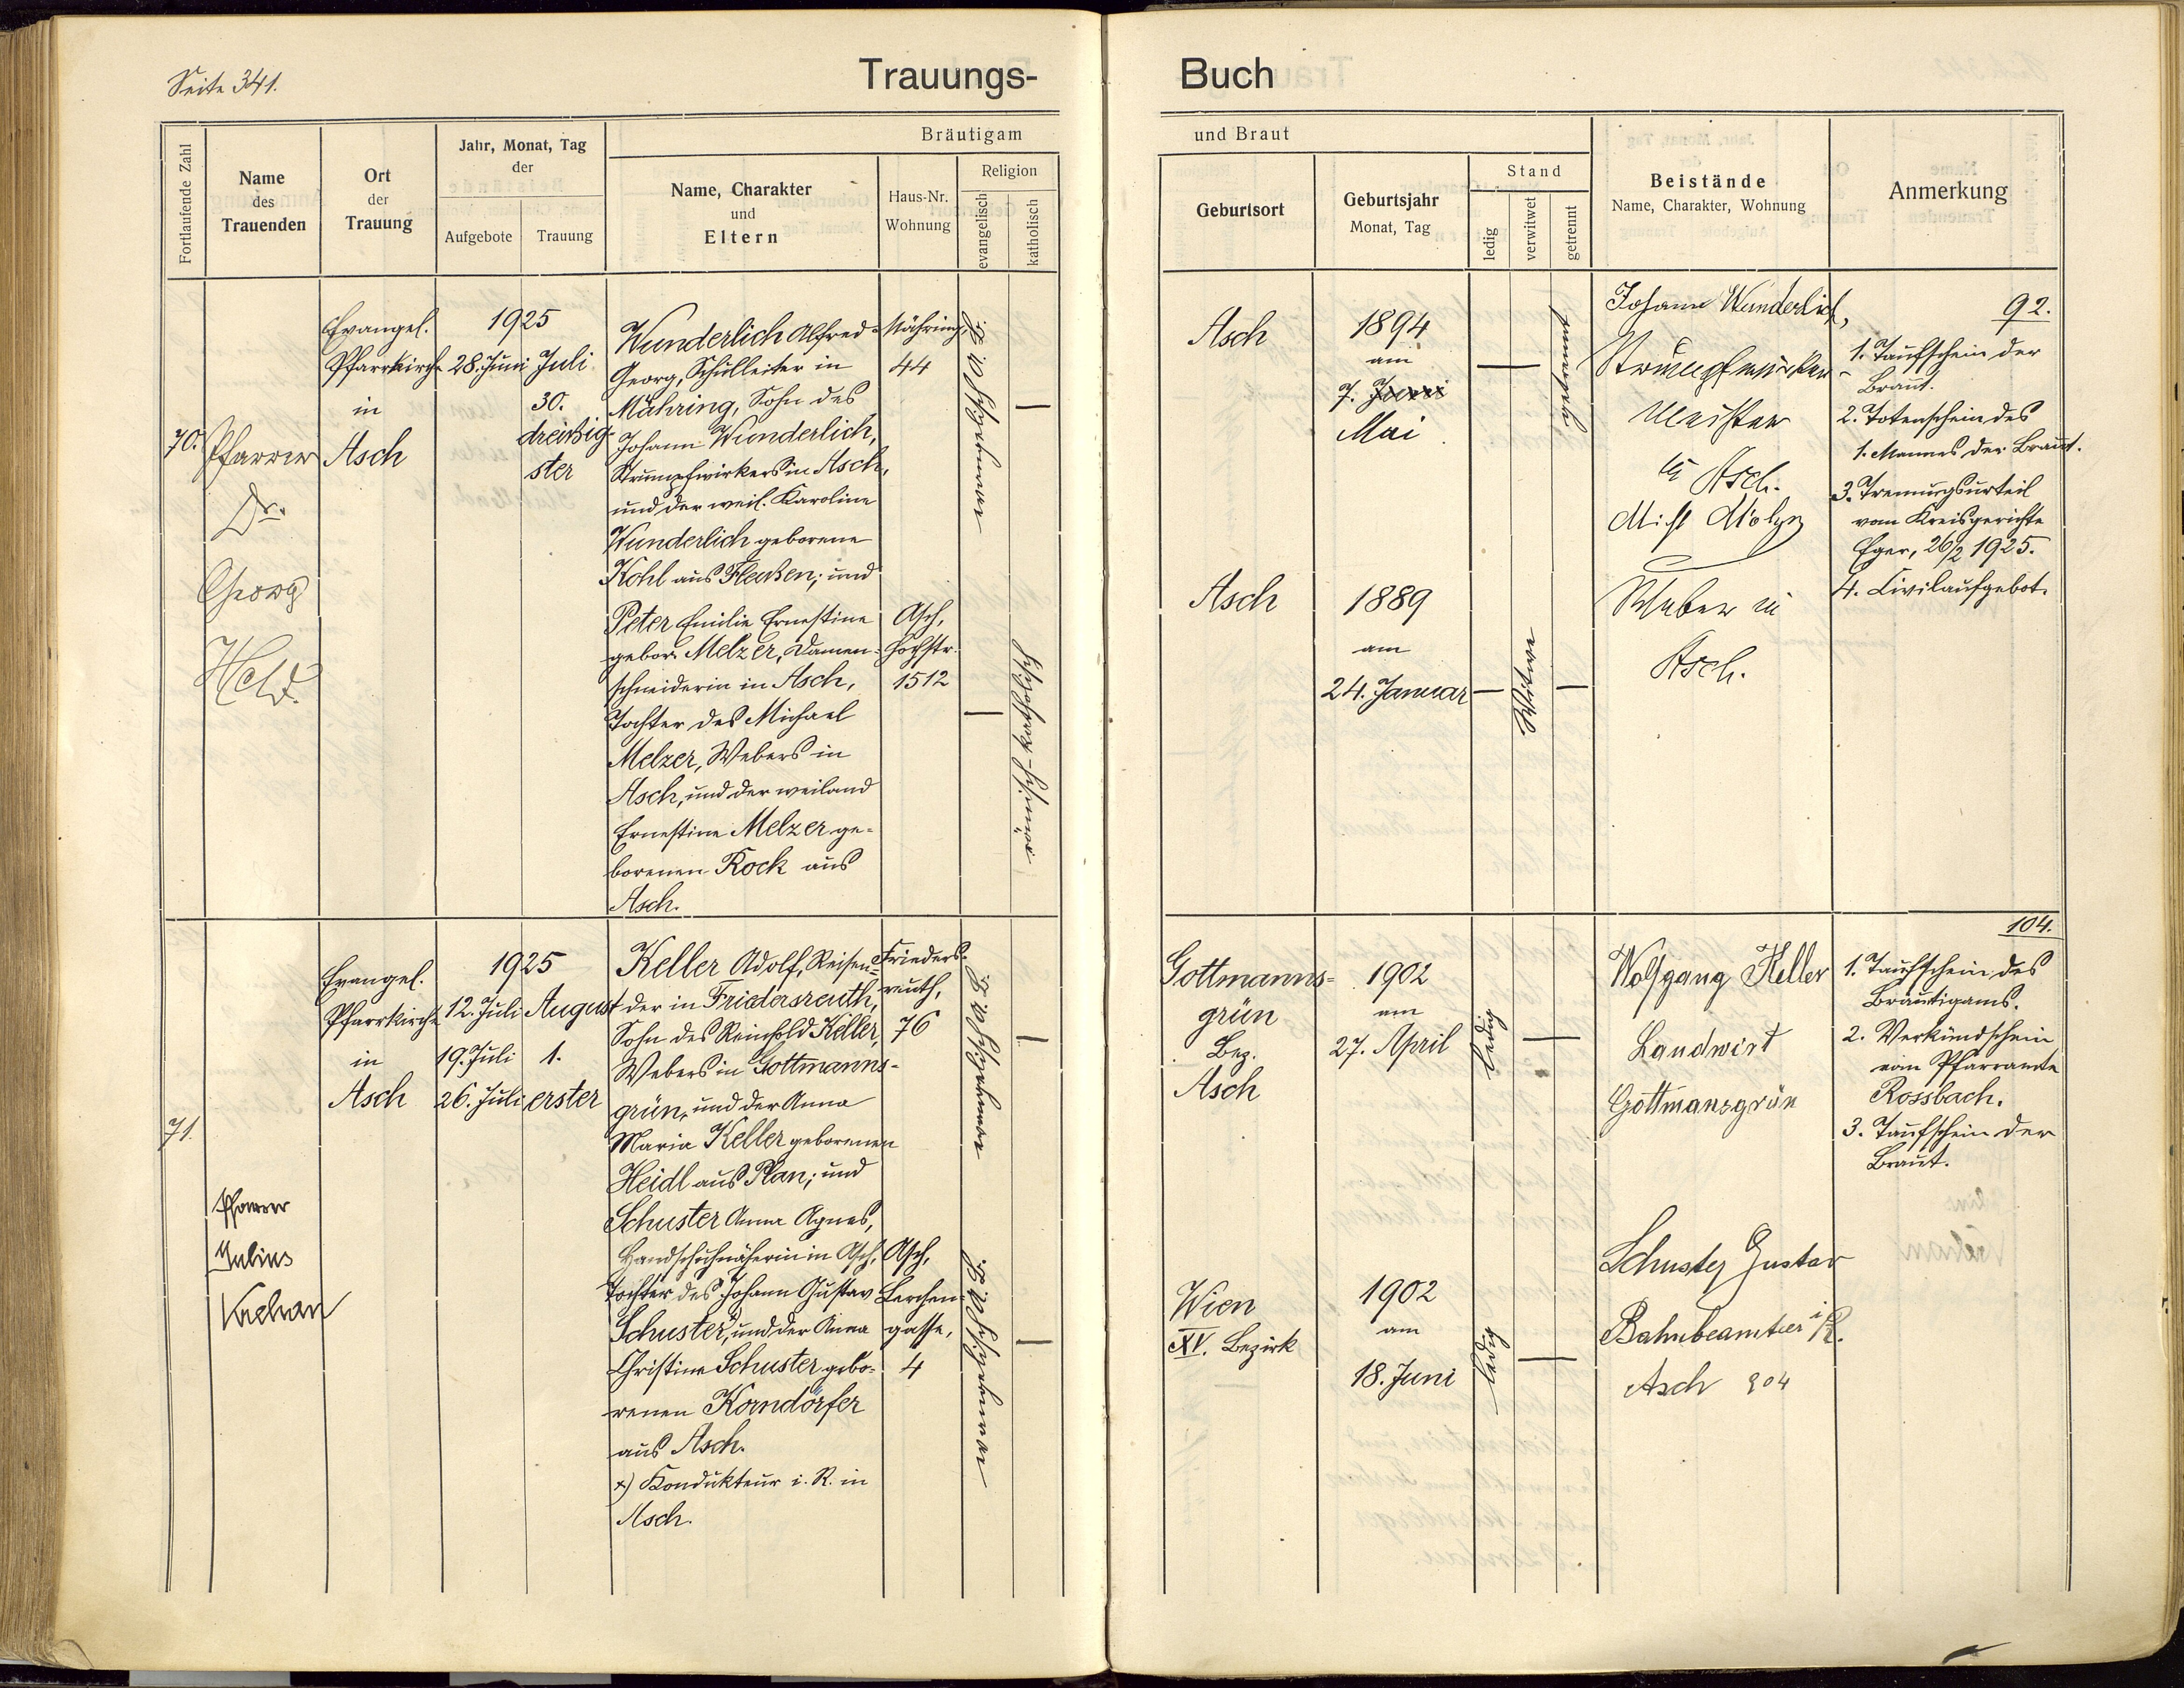 Seite 341.
Trauungs-
Buch
Fortlaufende Zahl
Name
des
Trauenden
Ort
der
Trauung
Jahr, Monat, Tag
der
Aufgebote
Trauung
Bräutigam
Name, Charakter
und
Eltern
Haus-Nr.
Wohnung
Religion
evangelisch
katholisch
und Braut
Geburtsort
Geburtsjahr
Monat, Tag
Stand
ledig
verwitwet
getrennt
Beistände
Name, Charakter, Wohnung
Anmerkung
70.
Pfarrer
Dr.
Georg
Held
Evangel.
Pfarrkirche
in
Asch
1925
28. Juni
Juli
30.
dreißig-
ster
Wunderlich Alfred
Georg, Schulleiter in
Mähring, Sohn des
Johann Wunderlich,
Strumpfwirkers in Asch,
und der weil. Karoline
Wunderlich geborene
Kohl aus Fleißen; und
Peter Emilie Ernestine
gebor. Melzer, Damen-
schneiderin in Asch,
Tochter des Michael
Melzer, Webers in
Asch, und der weiland
Ernestine Melzer ge-
borenen Rock aus
Asch.
Mähring,
44
Asch,
Hochstr.
1512
Asch
1894
am
7. Juni
Mai
getrennt
Asch
1889
am
24. Januar
Witwe
Johann Wunderlich,
Strumpfwirker-
Meister
in Asch.
Weber in
Asch.
92.
1. Taufschein der
Braut.
2. Totenschein des
1. Mannes der Braut.
3. Trennungsurteil
vom Kreisgerichte
Eger, 26/2 1925.
4. Civilaufgebot.
71.
Pfarrer
Julius
Evangel.
Pfarrkirche
in
Asch
1925
12. Juli
19. Juli
26. Juli
August
1.
erster
Keller Adolf, Reisen-
der in Friedersreuth,
Sohn des Reinhold Keller,
Webers in Gottmanns-
grün, und der Anna
Maria Keller geborenen
Heidl aus Plan; und
Schuster Anna Agnes,
Handschuhnäherin in Asch,
Tochter des Johann Gustav
Schuster, und der Anna
Christine Schuster gebo-
renen Korndörfer
aus Asch.
x) Kondukteur i. R. in
Asch.
Frieders-
reuth,
76
Asch,
Lerchen-
gasse,
4
Gottmanns-
grün
Bez.
Asch
1902
am
27. April
ledig
Wien
XV. Bezirk
1902
am
18. Juni
ledig
Wolfgang Keller
Landwirt
Gottmansgrün
Schuster Gustav
Bahnbeamter i R.
Asch 904
104.
1. Taufschein des
Bräutigams.
2. Verkündschein
vom Pfarramte
Rossbach.
3. Taufschein der
Braut.